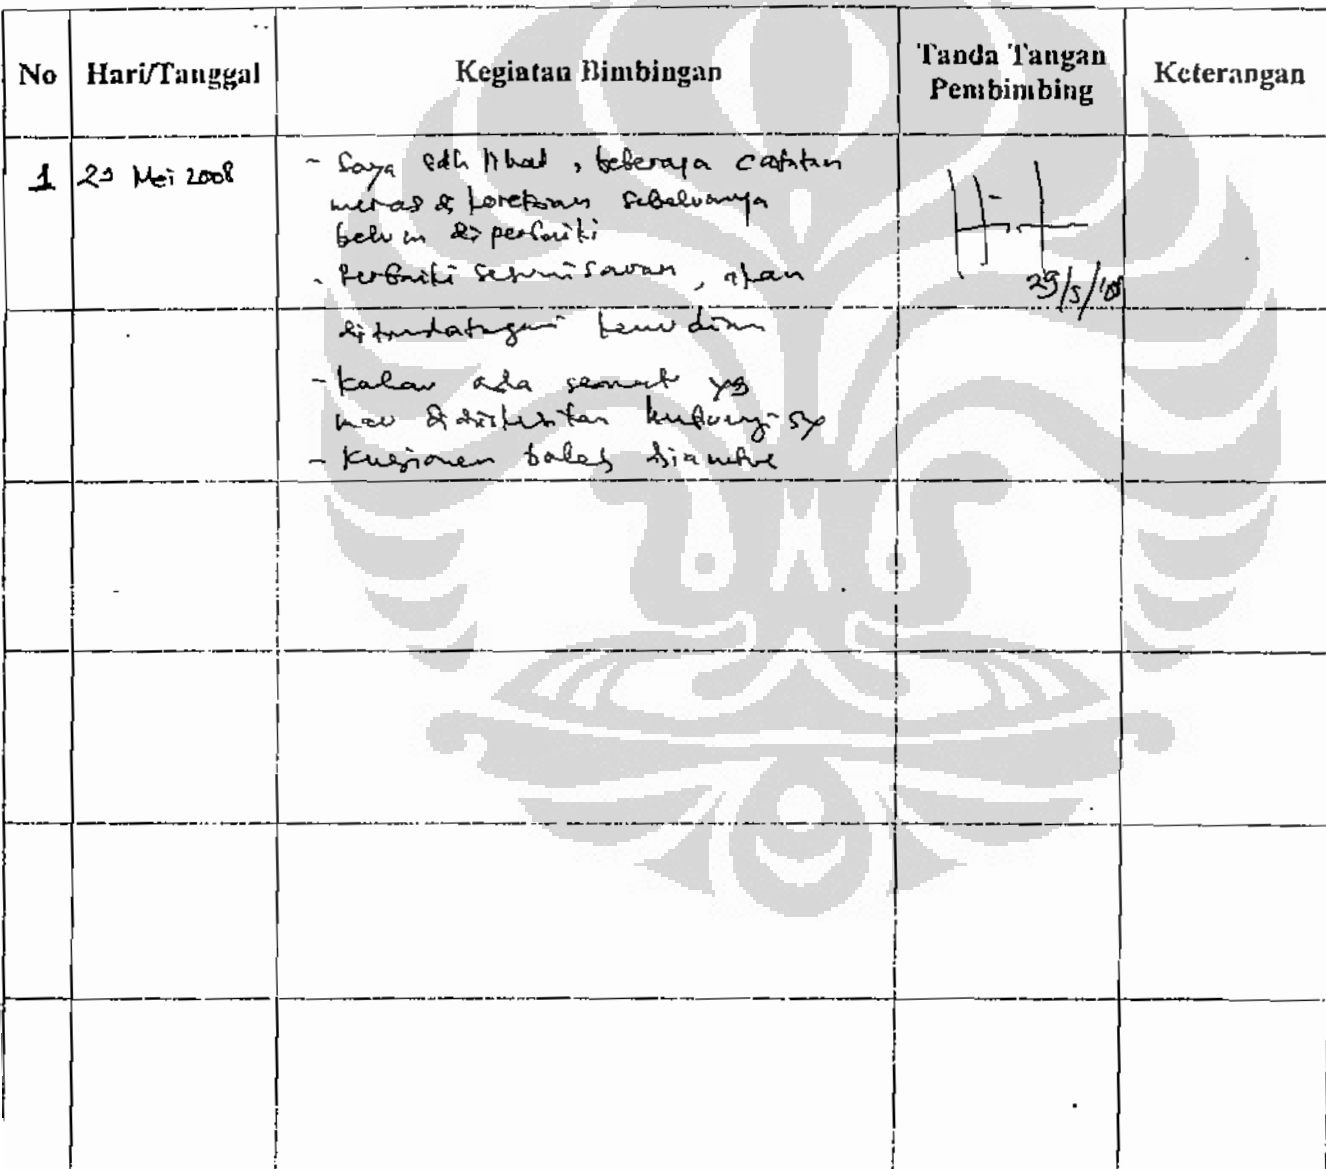 No Hari/Tanggal Kegiatan Bimbingan Tanda Tangan Pembimbing Keterangan
1 29 Mei 2008
- Saya sdh lihat, beberapa catatan
merah & koreksian sebelumnya
belum diperbaiki
- Perbaiki sesuai saran, akan
29/5/'08
ditandatangani kemudian
- Kalau ada yg
mau didiskusikan hubungi sy
- Kuesioner boleh